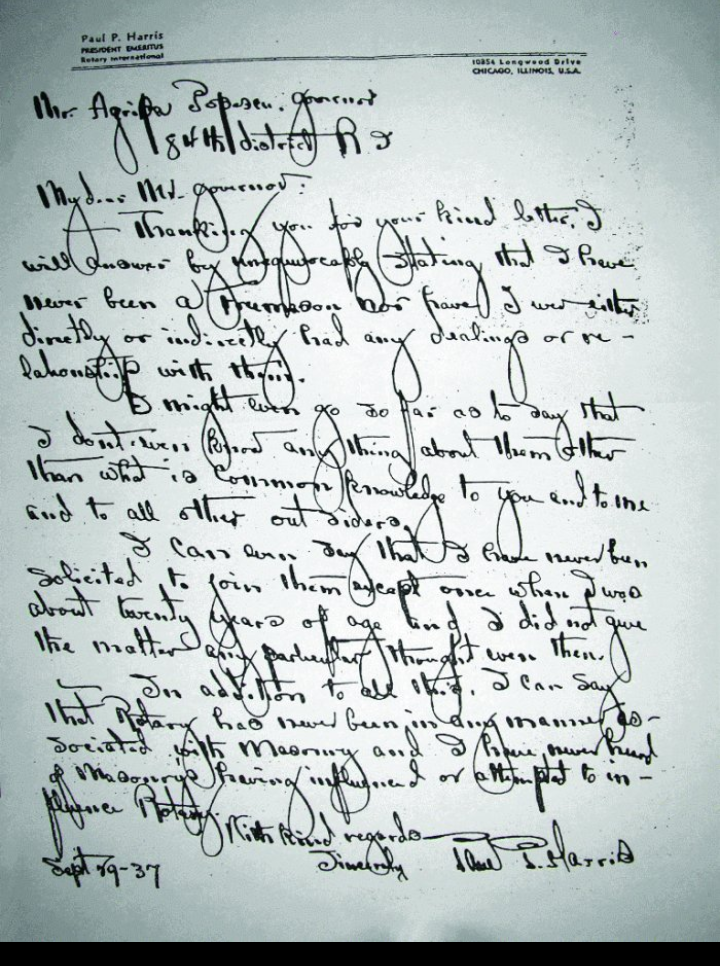 Paul P. Harris
PRESIDENT EMERITUS
Rotary International
10856 Longwood Drive
CHICAGO, ILLINOIS, U.S.A.
Mr. Agripa Popescu. Governor
84th district R I
My dear Mr. governor:
Thanking you for your kind letter, I
will answer by unequivocably stating that I have
never been a Freemason nor have I ever either
directly or indirectly had any dealings or re-
lationship with them.
I might even go so far as to say that
I dont even know any thing about them other
than what is common knowledge to you and to me
and to all other out siders.
I can even say that I have never been
solicited to join them except once when I was
about twenty years of age and I did not give
the matter any particular thought even then.
In addition to all this, I can say
that Rotary has never been in any manner as-
sociated with Masonry and I have never heard
of Masonry's having influenced or attempted to in-
fluence Rotary.
With kind regards
Sincerely Paul P. Harris
Sept 29-37